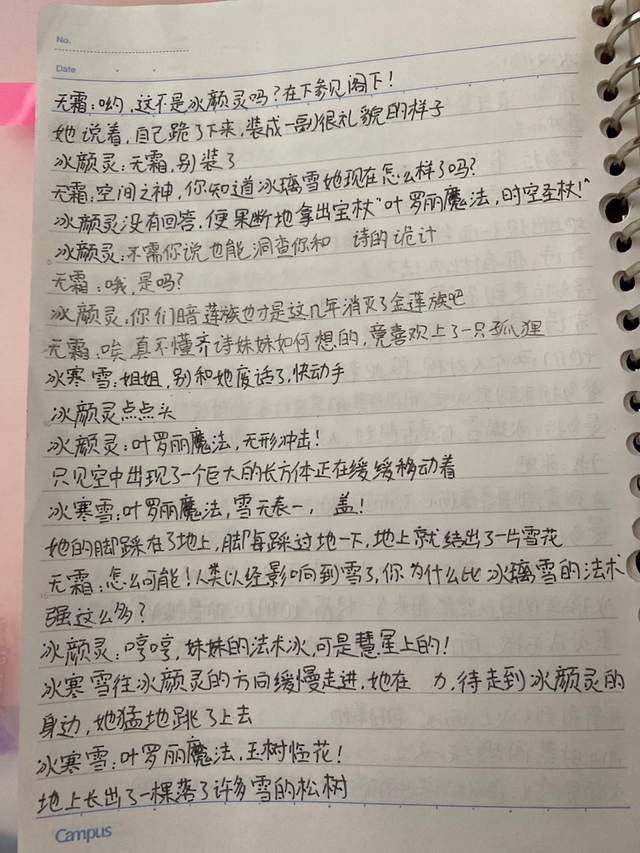 No.
Date
无霜:哟,这不是冰颜灵吗?在下参见阁下!
她说着,自己跪了下来,装成一副很礼貌的样子
冰颜灵:无霜,别装了
无霜:空间之神,你知道冰璃雪她现在怎么样了吗?
冰颜灵没有回答,便果断地拿出宝杖“叶罗丽魔法,时空圣杖!”
冰颜灵:不需你说也能洞查你和 诗的诡计
无霜:哦,是吗?
冰颜灵:你们暗莲族也才是这几年消灭了金莲族吧
无霜:唉 真不懂齐诗妹妹如何想的,竟喜欢上了一只孤狸
冰寒雪:姐姐,别和她废话了,快动手
冰颜灵点点头
冰颜灵:叶罗丽魔法,无形冲击!
只见空中出现了一个巨大的长方体正在缓缓移动着
冰寒雪:叶罗丽魔法,雪无表一, 盖!
她的脚踩在了地上,脚每踩过地一下,地上就结出了一片雪花
无霜:怎么可能!人类以经影响到雪了,你为什么比冰璃雪的法术
强这么多?
冰颜灵:哼哼,妹妹的法术冰,可是慧星上的!
冰寒雪往冰颜灵的方向缓慢走进,她在 力,待走到冰颜灵的
身边,她猛地跳了上去
冰寒雪:叶罗丽魔法,玉树临花!
地上长出了一棵落了许多雪的松树
Campus